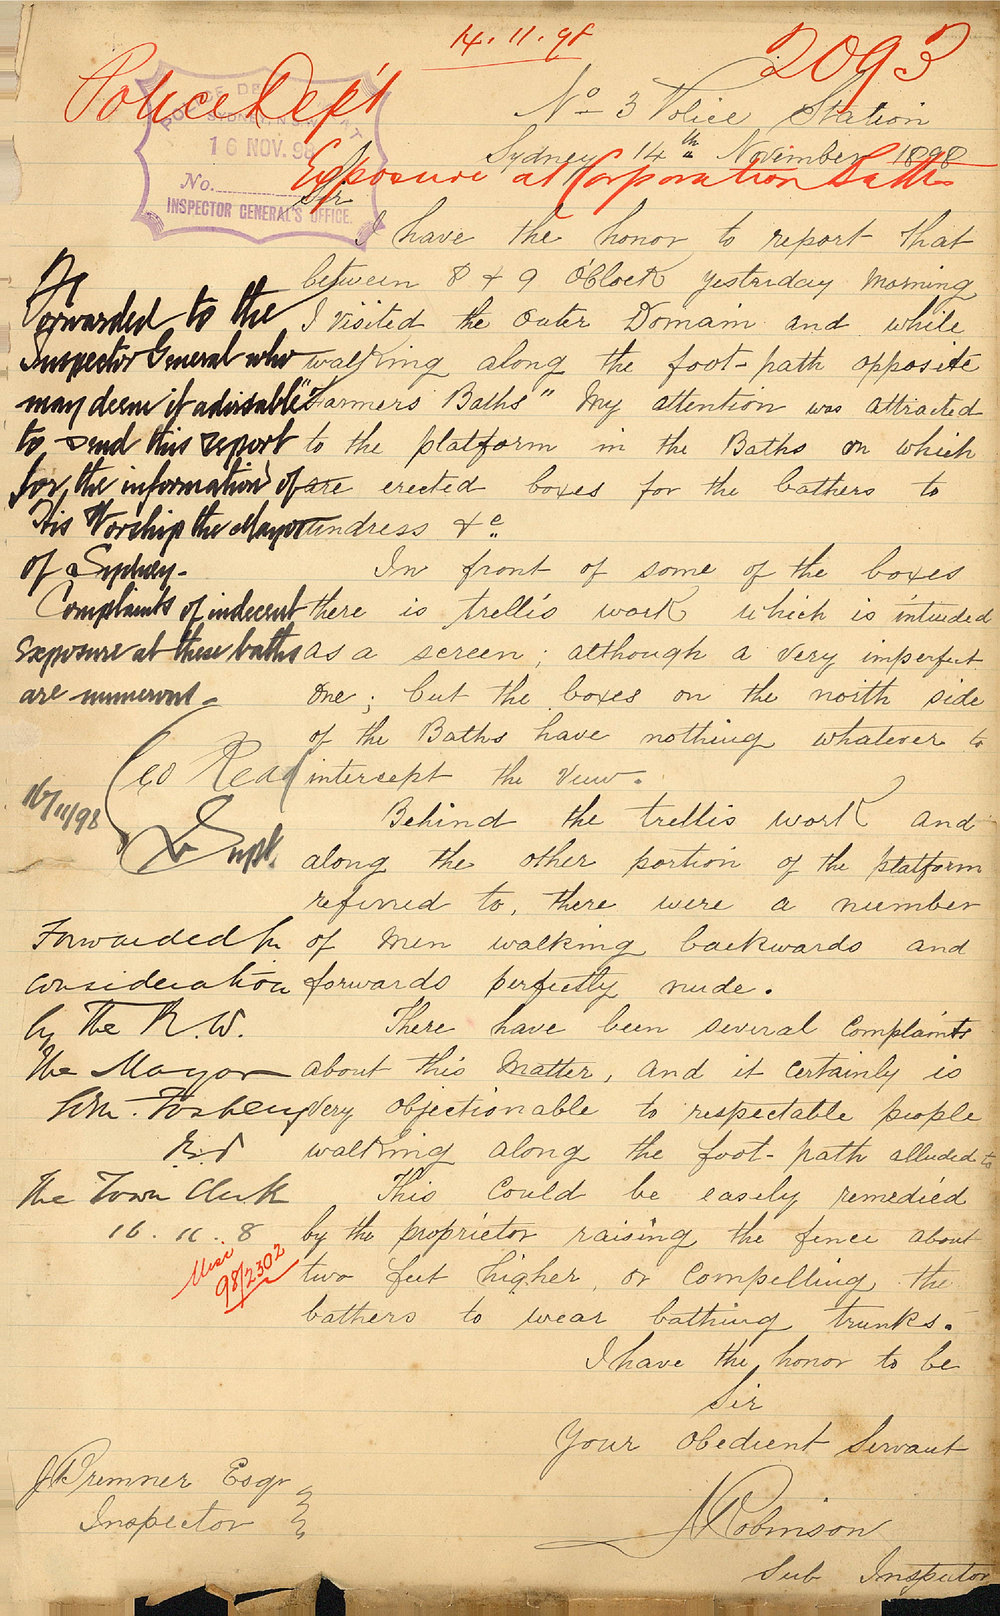 14.11.98
2093
Police Dep't
POLICE DE
SYDNEY, N.S.W.
16 NOV. 98
No.
INSPECTOR GENERAL'S OFFICE.
No 3 Police Station
Sydney 14th November 1898
Exposure at Corporation Baths
Sir
I have the honor to report that
between 8 & 9 O'Clock yesterday morning
I visited the Outer Domain and while
walking along the foot-path opposite
"Farmers Baths" My attention was attracted
to the platform in the Baths on which
are erected boxes for the bathers to
undress &c
In front of some of the boxes
there is trellis work which is intended
as a screen; although a very imperfect
one; but the boxes on the north side
of the Baths have nothing whatever to
intercept the view.
Behind the trellis work and
along the other portion of the platform
referred to, there were a number
of Men walking backwards and
forwards perfectly nude.
There have been several Complaints
about this Matter, and it certainly is
very objectionable to respectable people
walking along the foot-path alluded to
This could be easely remedied
by the proprietor raising the fence about
two feet higher, or Compelling the
bathers to wear bathing trunks.
I have the honor to be
Sir
Your Obedient Servant
Robinson
Sub Inspector
Premner Esqr
Inspector
Forwarded to the
Inspector General who
may deem it advisable
to send this report
for the information of
His Worship the Mayor
of Sydney.
Complaints of indecent
exposure at these baths
are numerous.
Geo Read
Supt.
16/11/98
Forwarded for
consideration
by The R. W.
The Mayor
The Town Clerk
16.11.8
98/2302